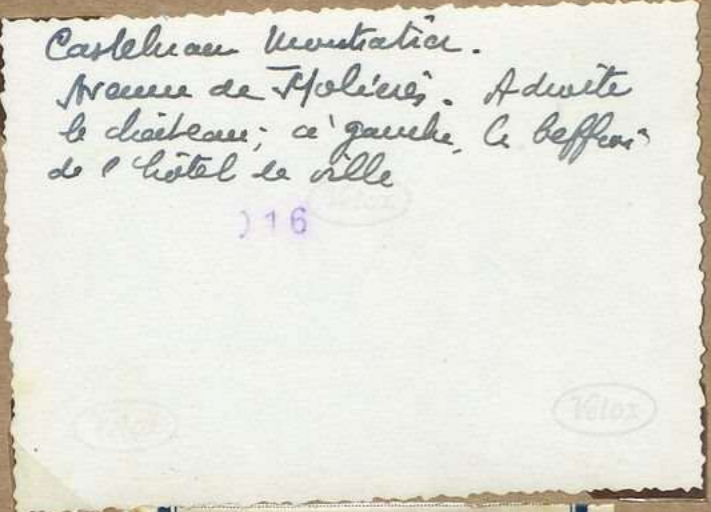 Castelnau Montratier.
Avenue de Molières. A droite
le château; à gauche, le beffroi
de l'hôtel de ville
Velox
16
Velox
Velox